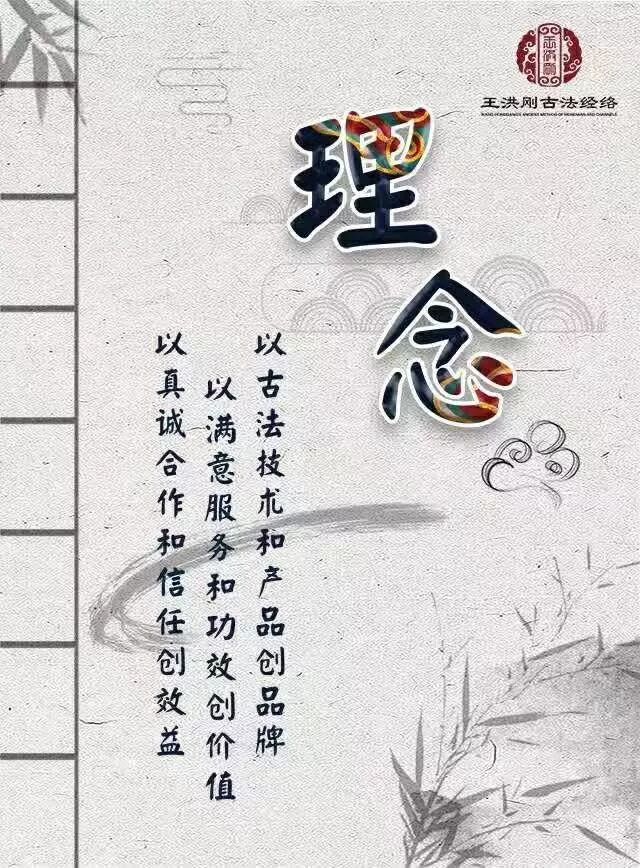 王洪刚古法经络
理念
以古法技术和产品创品牌
以满意服务和功效创价值
以真诚合作和信任创效益